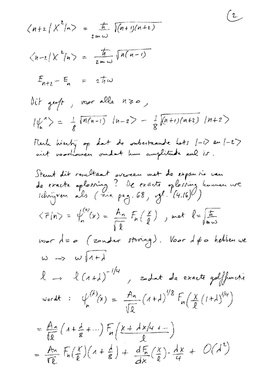 (2
⟨n+2|X²|n⟩ = ħ/2mω √(n+1)(n+2)
⟨n-2|X²|n⟩ = ħ/2mω √n(n-1)
E_{n+2} - E_n = 2ħω
Dit geeft, voor alle n≥0,
|ψ_n^1⟩ = 1/8 √n(n-1) |n-2⟩ - 1/8 √(n+1)(n+2) |n+2⟩
Merk hierbij op dat de onbestaande kets |-1⟩ en |-2⟩
niet voorkomen omdat hun amplitude nul is.
Stemt dit resultaat overeen met de expansie van
de exacte oplossing? De exacte oplossing kunnen we
schrijven als (zie pag. 68, vgl. (4.16))
⟨r|n⟩ = ψ_n^{(0)}(x) = A_n/√ℓ F_n(x/ℓ), met ℓ = √ħ/mω
voor λ=0 (zonder storing). Voor λ≠0 hebben we
ω → ω√1+λ
ℓ → ℓ(1+λ)^{-1/4}, zodat de exacte golffunctie
wordt: ψ_n^{(λ)}(x) = A_n/√ℓ (1+λ)^{1/8} F_n(x/ℓ (1+λ)^{1/4})
= A_n/√ℓ (1+λ/8+...) F_n(x+λx/4+.../ℓ)
= A_n/√ℓ F_n(x/ℓ)(1+λ/8) + dF_n/dx (x/ℓ) · λx/4 + O(λ²)